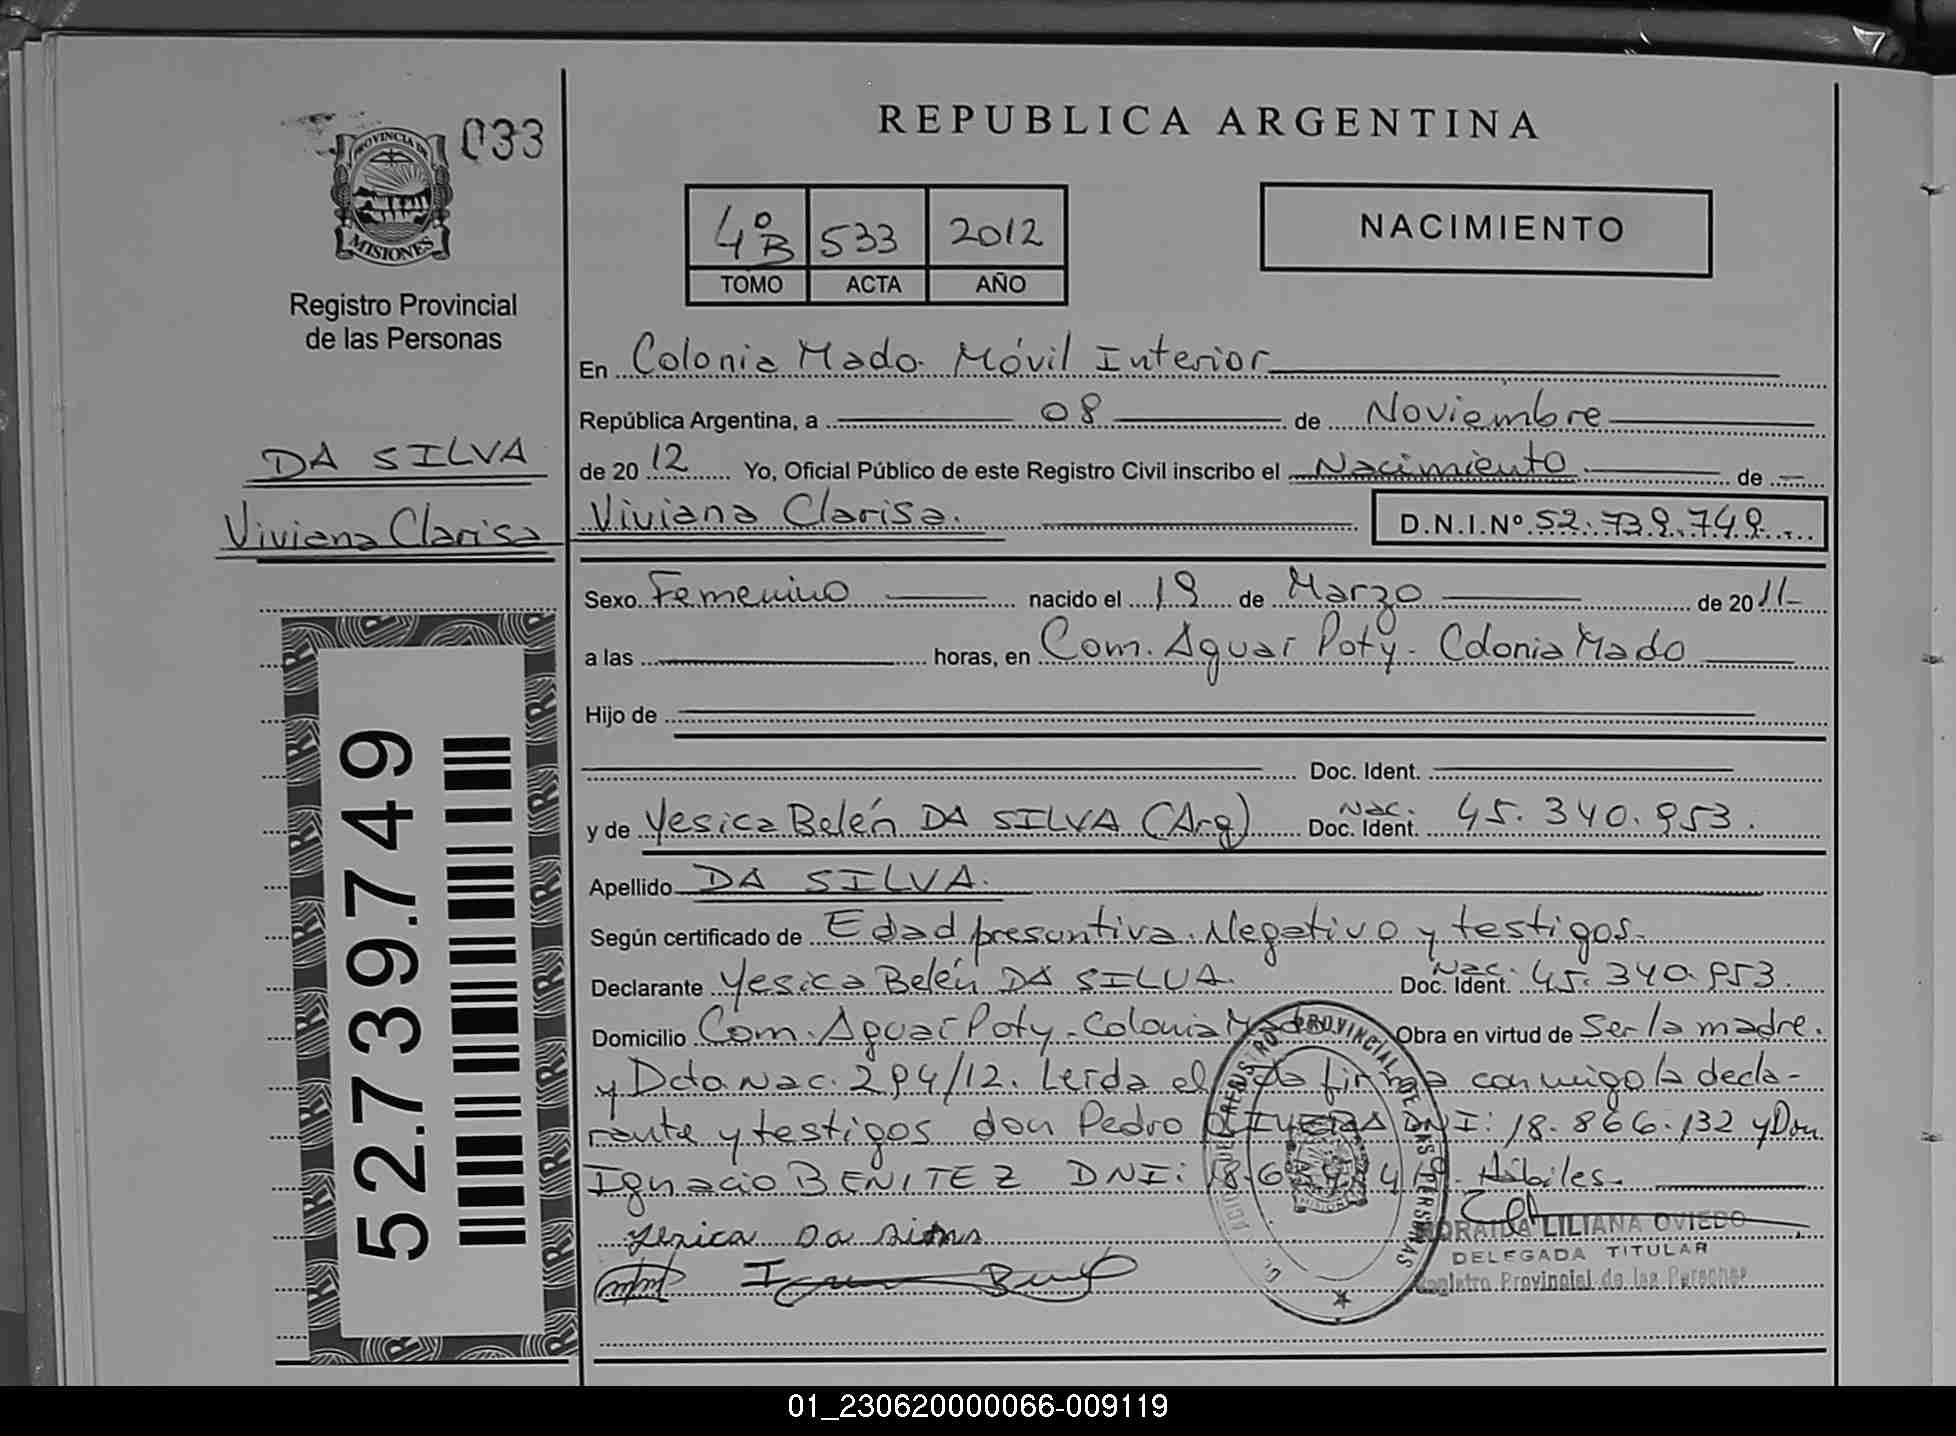 033
PROVINCIA DE
MISIONES
Registro Provincial
de las Personas
DA SILVA
Viviana Clarisa
52.739.749
REPUBLICA ARGENTINA
4º B 533 2012
TOMO ACTA AÑO
NACIMIENTO
En Colonia Mado. Móvil Interior
República Argentina, a 08 de Noviembre
de 20 12 Yo, Oficial Público de este Registro Civil inscribo el Nacimiento de
Viviana Clarisa. D.N.I.Nº 52.739.749
Sexo Femenino nacido el 19 de Marzo de 20 11
a las horas, en Com. Aguaí Poty - Colonia Mado
Hijo de
Doc. Ident.
y de Yesica Belén DA SILVA (Arg) Nac. Doc. Ident. 45.340.953.
Apellido DA SILVA.
Según certificado de Edad presuntiva. Negativo y testigos.
Declarante Yesica Belén DA SILVA. Nac. Doc. Ident. 45.340.953.
Domicilio Com. Aguaí Poty - Colonia Mado Obra en virtud de Ser la madre.
y Dcto Nac. 294/12. Leída el firma conmigo la decla-
rante y testigos don Pedro OLIVERA DNI: 18.866.132 y Don
Ignacio BENITEZ DNI: 18.6 4 - Hábiles.
Yesica Da Silva
REGISTRO PROVINCIAL DE LAS PERSONAS
MORAIDA LILIANA OVIEDO
DELEGADA TITULAR
Registro Provincial de las Personas
01_230620000066-009119